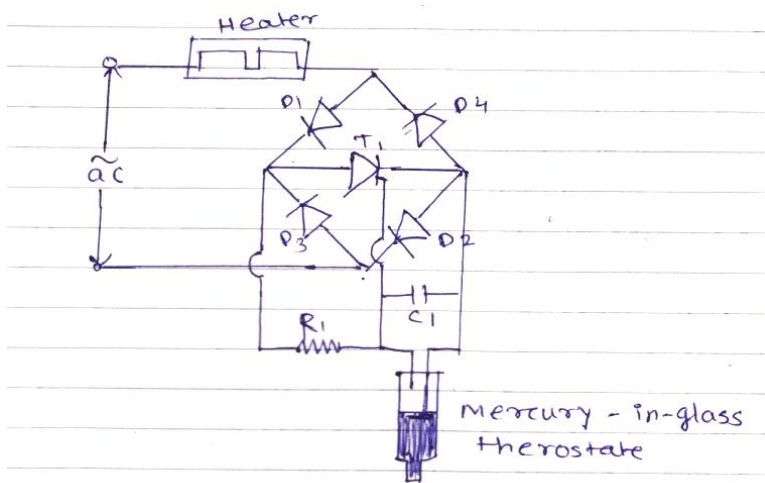 Heater
D1
D4
T1
~
ac
D3
D2
C1
R1
Mercury - in-glass
therostate